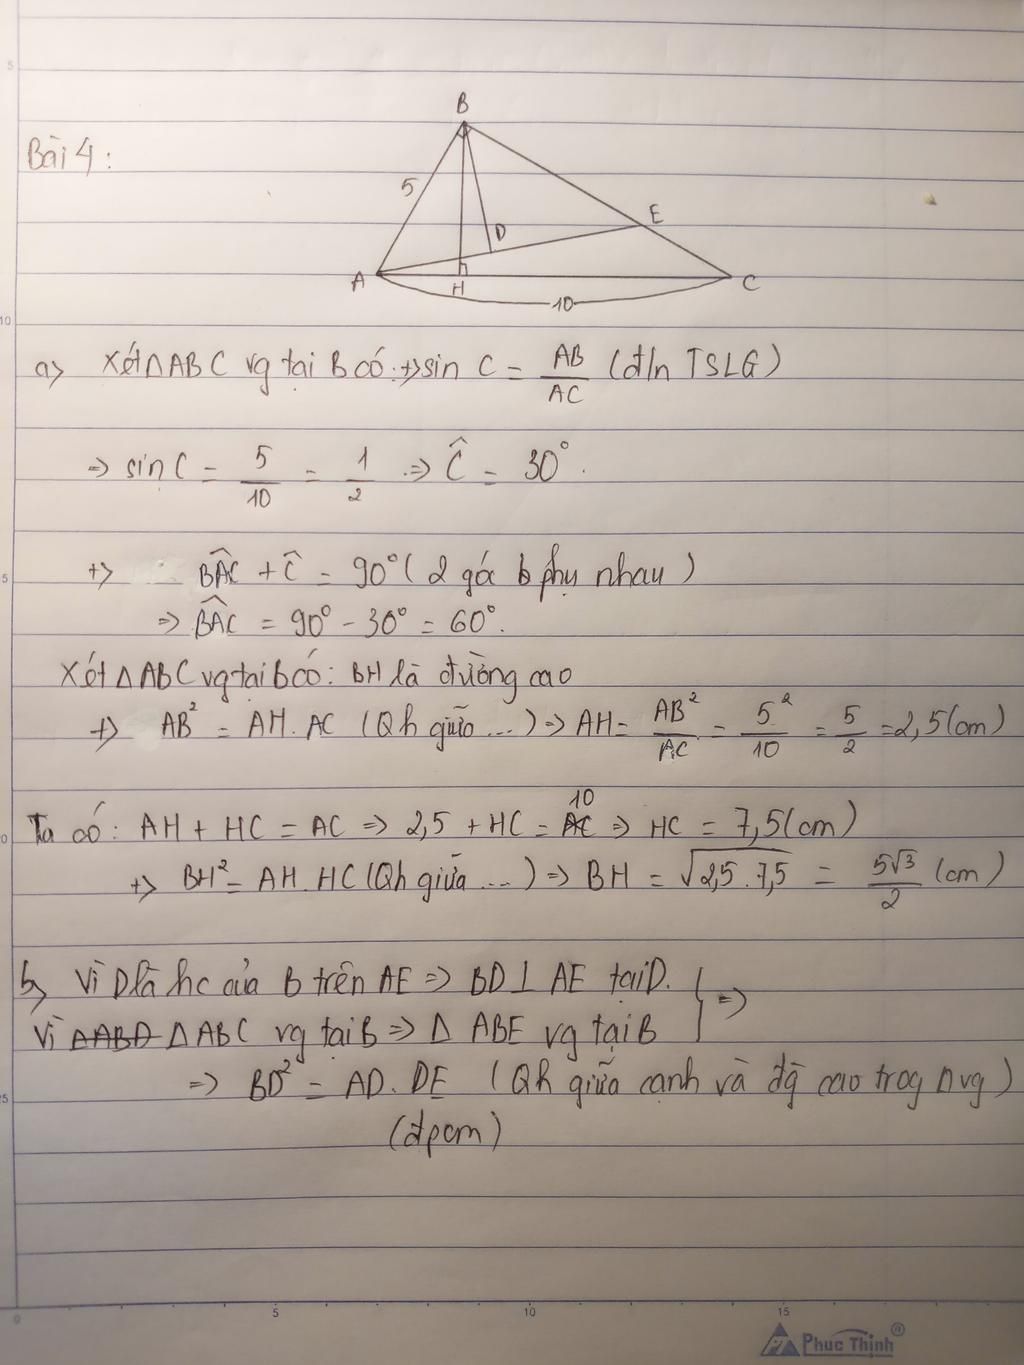 B
Bài 4:
5
E
D
A
H
C
10
a> Xét △ABC vg tại B có: +> sin C = AB/AC (đ/n TSLG)
=> sin C = 5/10 = 1/2 => Ĉ = 30°.
+> BÂC + Ĉ = 90° (2 góc phụ nhau)
=> BÂC = 90° - 30° = 60°.
Xét △ABC vg tại B có: BH là đường cao
+> AB² = AH. AC (Qh giữa ...) => AH = AB²/AC = 5²/10 = 5/2 = 2,5 (cm)
Ta có: AH + HC = AC => 2,5 + HC = 10 => HC = 7,5 (cm)
+> BH² = AH. HC (Qh giữa ...) => BH = √2,5 . 7,5 = 5√3/2 (cm)
b> Vì D là hc của B trên AE => BD ⊥ AE tại D. } =>
Vì △ABD △ABC vg tại B => △ ABE vg tại B
=> BD² = AD. DE (Qh giữa cạnh và đg cao trog △vg)
(đpcm)
5
10
5
0
5
0 5 10 15
Phuc Thinh ®